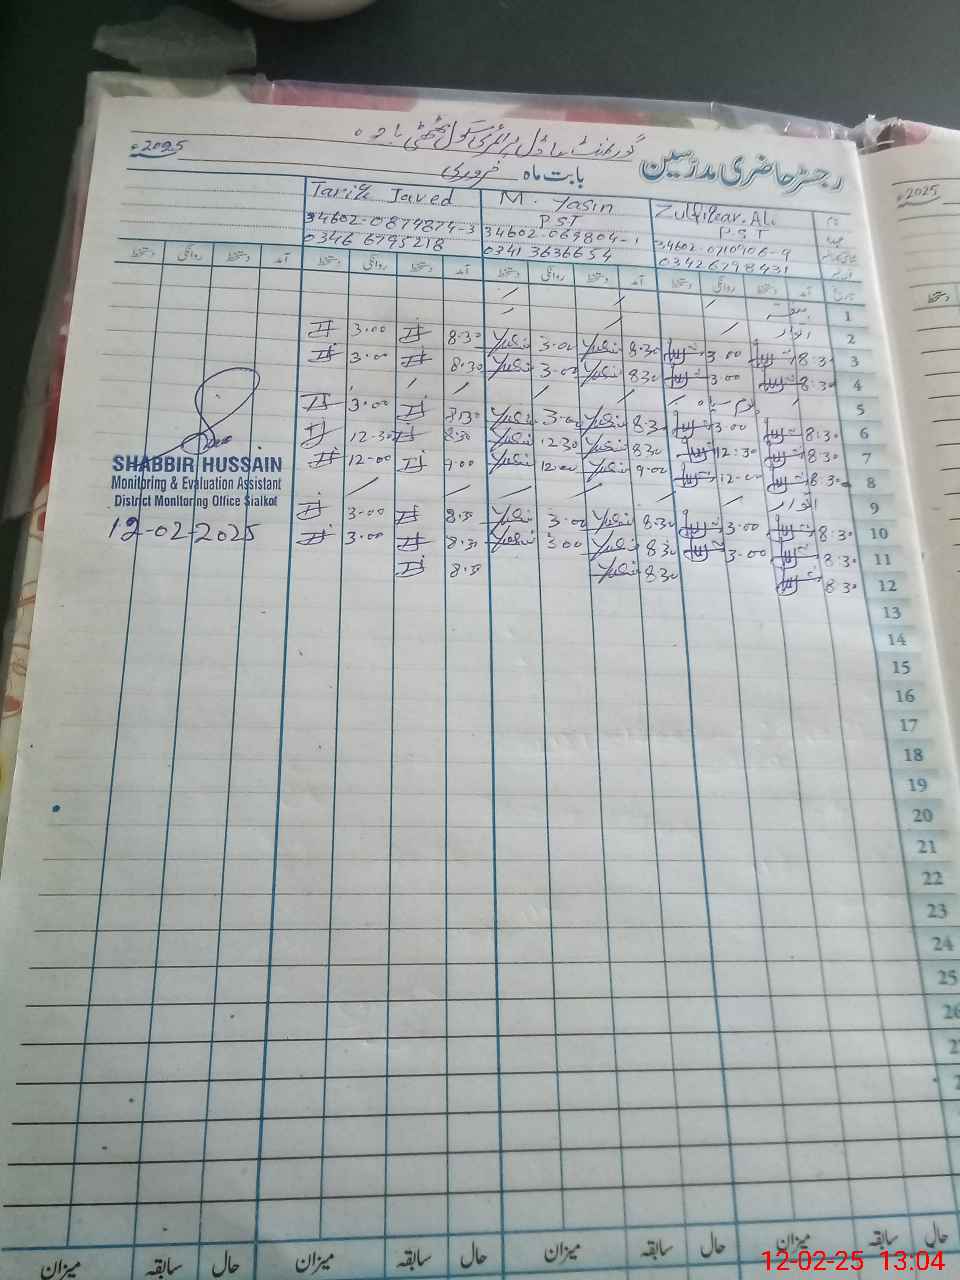 گورنمنٹ ماڈل پرائمری سکول
رجسٹر حاضری مدرسین
بابت ماہ فروری 2025ء
2025ء
Tariq Javed M. Yasin Zulfiqar Ali نام
PST P.S.T عہدہ
34602-0874874-3 34602-0710906-9
03466795218 0341 3636654 03426798431
دستخط روانگی دستخط آمد دستخط روانگی دستخط آمد دستخط روانگی دستخط آمد دستخط روانگی دستخط آمد تاریخ
/ / / ہفتہ 1
/ / / اتوار 2
3.00 8.30 Yasin 3.00 Yasin 8.30 3.00 8.30 3
3.00 8.30 Yasin 3.00 Yasin 8.30 3.00 8.30 4
/ / / / / / 5
3.00 8.30 Yasin 3.00 Yasin 8.30 3.00 8.30 6
12.30 8.30 Yasin 12.30 Yasin 8.30 12.30 8.30 7
12.00 9.00 Yasin 12.00 Yasin 9.00 12.00 8.30 8
/ / / / / / اتوار 9
3.00 8.30 Yasin 3.00 Yasin 8.30 3.00 8.30 10
3.00 8.30 Yasin 3.00 Yasin 8.30 3.00 8.30 11
8.30 Yasin 8.30 8.30 12
13
14
15
16
17
18
19
20
21
22
23
24
25
26
SHABBIR HUSSAIN
Monitoring & Evaluation Assistant
District Monitoring Office Sialkot
12-02-2025
میزان سابقہ حال میزان سابقہ حال میزان سابقہ حال میزان سابقہ حال
12-02-25 13:04